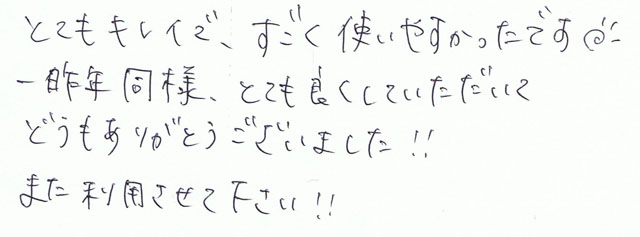 とてもキレイで、すごく使いやすかったです
一昨年同様、とても良くしていただいて
どうもありがとうございました!!
また利用させて下さい!!